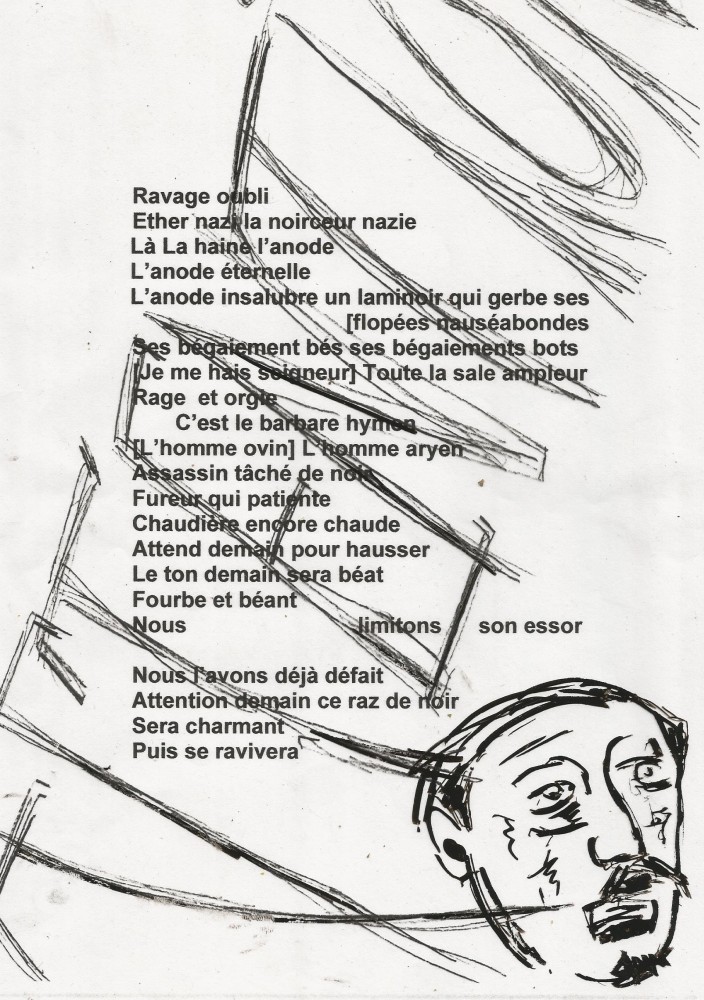 Ravage oubli
Ether nazi la noirceur nazie
Là La haine l'anode
L'anode éternelle
L'anode insalubre un laminoir qui gerbe ses
[flopées nauséabondes
Ses bégaiement bés ses bégaiements bots
[Je me hais seigneur] Toute la sale ampleur
Rage et orgie
C'est le barbare hymen
[L'homme ovin] L'homme aryen
Assassin tâché de noir
Fureur qui patiente
Chaudière encore chaude
Attend demain pour hausser
Le ton demain sera béat
Fourbe et béant
Nous limitons son essor
Nous l'avons déjà défait
Attention demain ce raz de noir
Sera charmant
Puis se ravivera